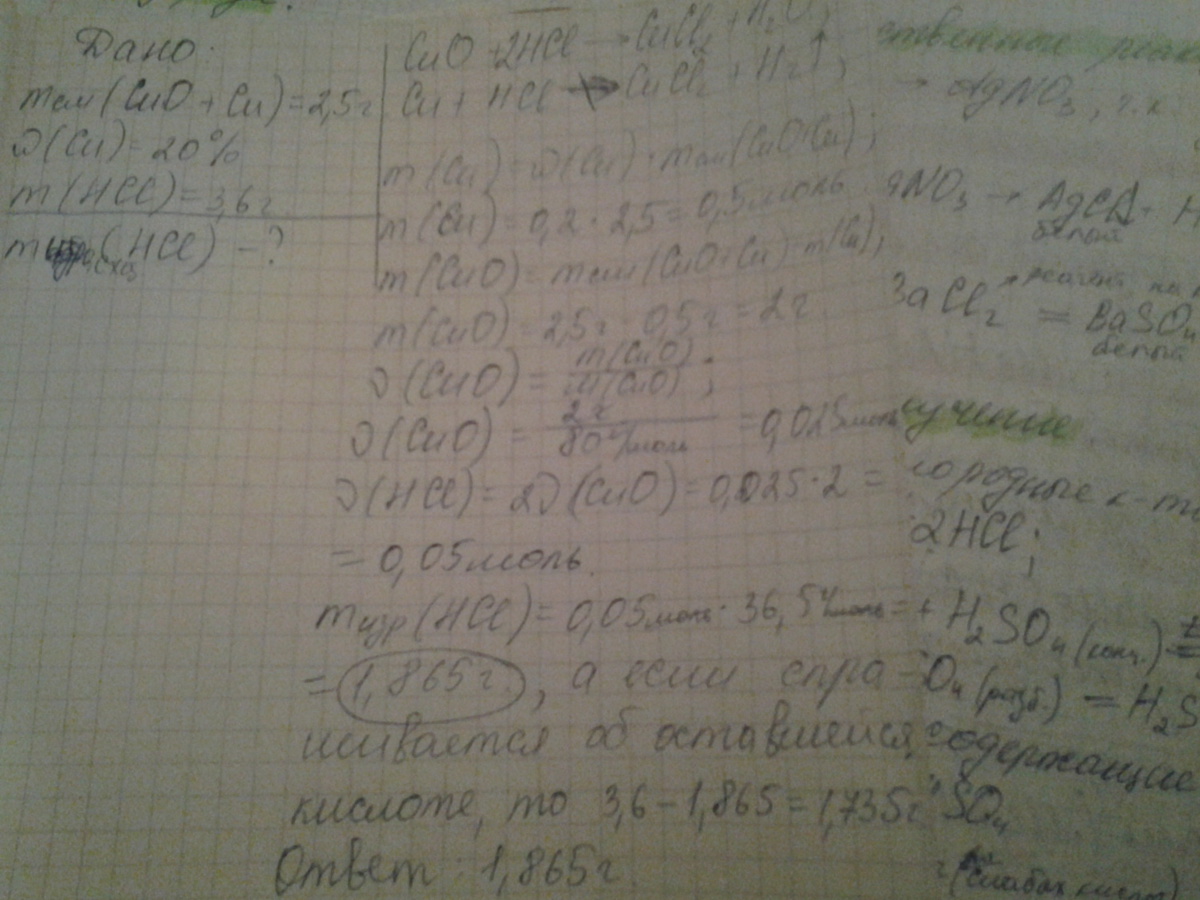 Дано:
mсм(CuO + Cu) = 2,5г
ω(Cu) = 20%
m(HCl) = 3,6г
(HCl) – ?
CuO + 2HCl → CuCl₂ + H₂O;
Cu + HCl ↛ CuCl₂ + H₂↑;
m(Cu) = ω(Cu) · mсм(CuO+Cu);
m(Cu) = 0,2 · 2,5 = 0,5моль
m(CuO) = mсм(CuO+Cu) – m(Cu);
m(CuO) = 2,5г – 0,5г = 2г.
ν(CuO) = m(CuO)/M(CuO);
ν(CuO) = 2г/80г/моль = 0,025моль
ν(HCl) = 2ν(CuO) = 0,025·2 =
= 0,05моль.
(HCl) = 0,05моль · 36,5г/моль =
= 1,865г., а если спра-
шивается об оставшейся
кислоте, то 3,6 – 1,865 = 1,735г
Ответ: 1,865г.
ственные
→ AgNO₃, т.к.
gNO₃ → AgCl +
белый
BaCl₂ = BaSO₄
белый
учение
ородные к-т
2HCl;
+ H₂SO₄ (конц.)
O₄ (разб.) = H₂S
содержащие
SO₄